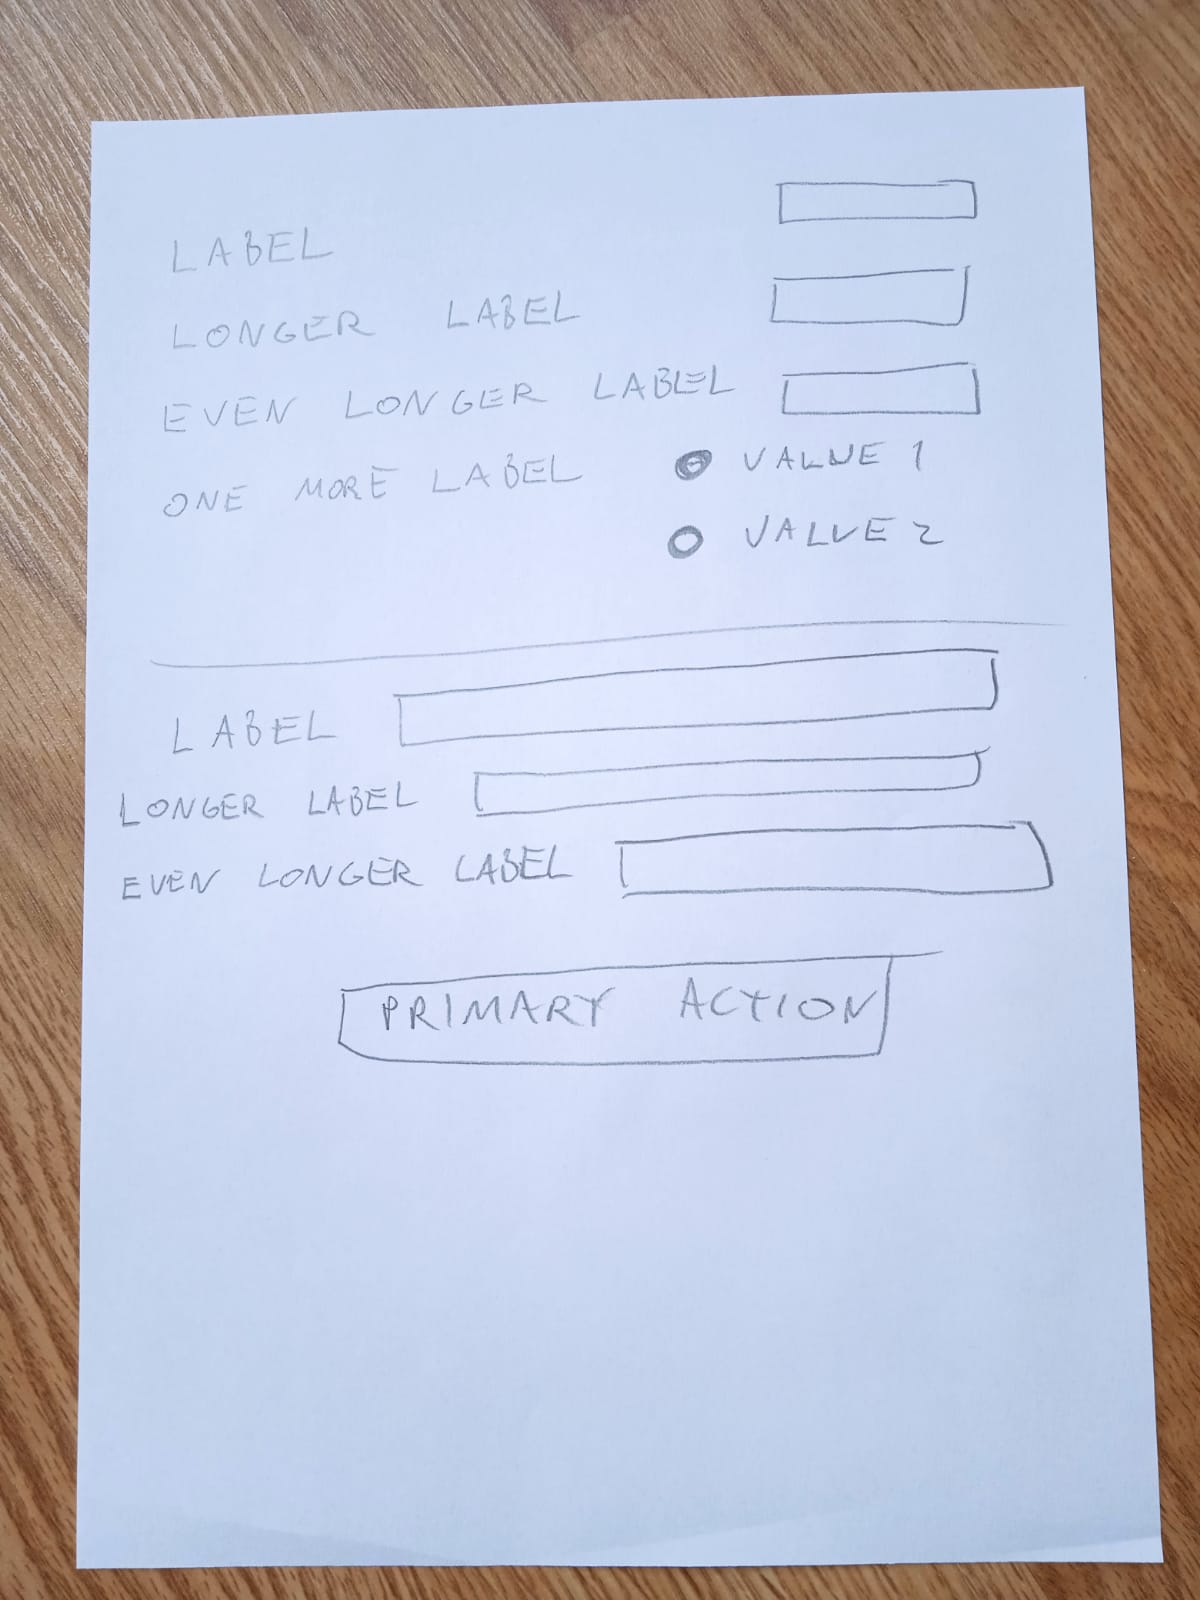 LABEL
LONGER LABEL
EVEN LONGER LABEL
ONE MORE LABEL
VALUE 1
VALUE 2
LABEL
LONGER LABEL
EVEN LONGER LABEL
PRIMARY ACTION